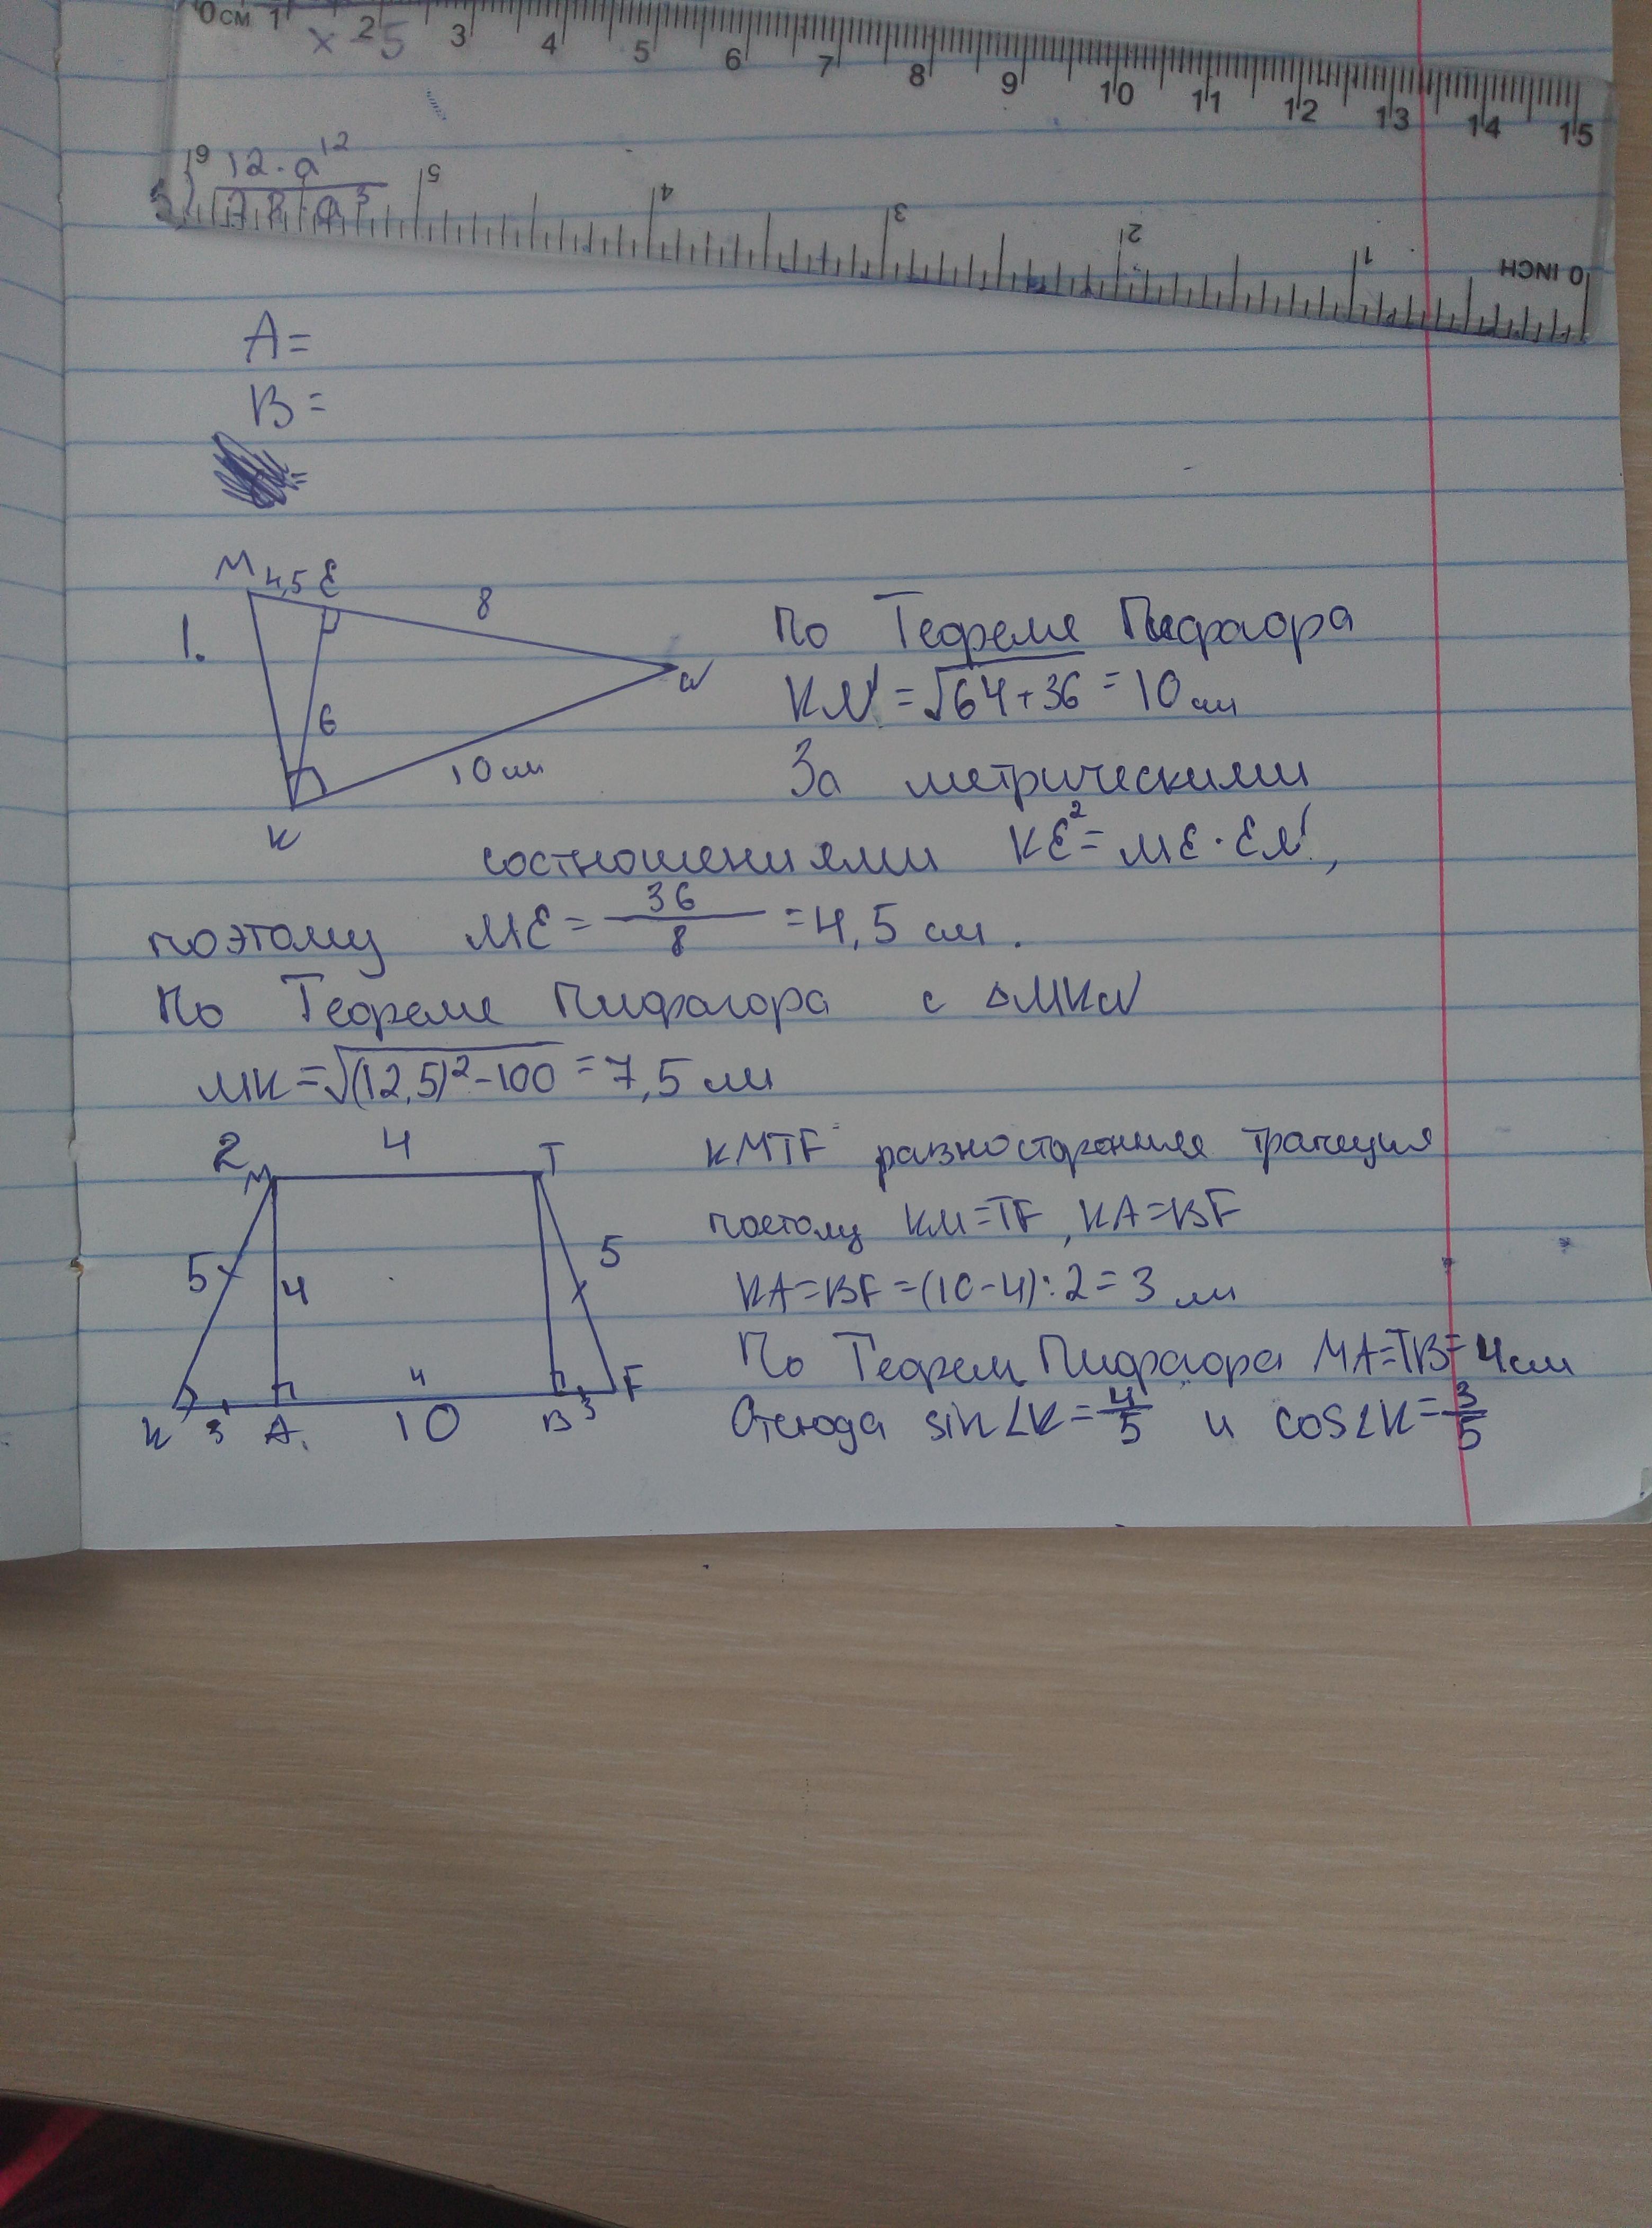 0 СМ 1 2 3 4 5 6 7 8 9 10 11 12 13 14 15
x - 5
12 · a¹²
5 4 3 2 1 0 INCH
A =
B =
M 4,5 E 8
1.
N
6
10 см
K
По Теореме Пифагора
KN = √64+36 = 10 см
За метрическими
состношениями KE² = ME · EN,
поэтому ME = 36/8 = 4,5 см.
По Теореме Пифагора с △MKN
MK = √(12,5)² - 100 = 7,5 см
2 M 4 T
5 4 5
4
K 3 A 10 B 3 F
KMTF равносторонняя трапеция
поэтому KM = TF, KA = BF
KA = BF = (10 - 4) : 2 = 3 см
По Теорем Пифагора MA = TB = 4 см
Отсюда sin∠K = 4/5 и cos∠K = 3/5